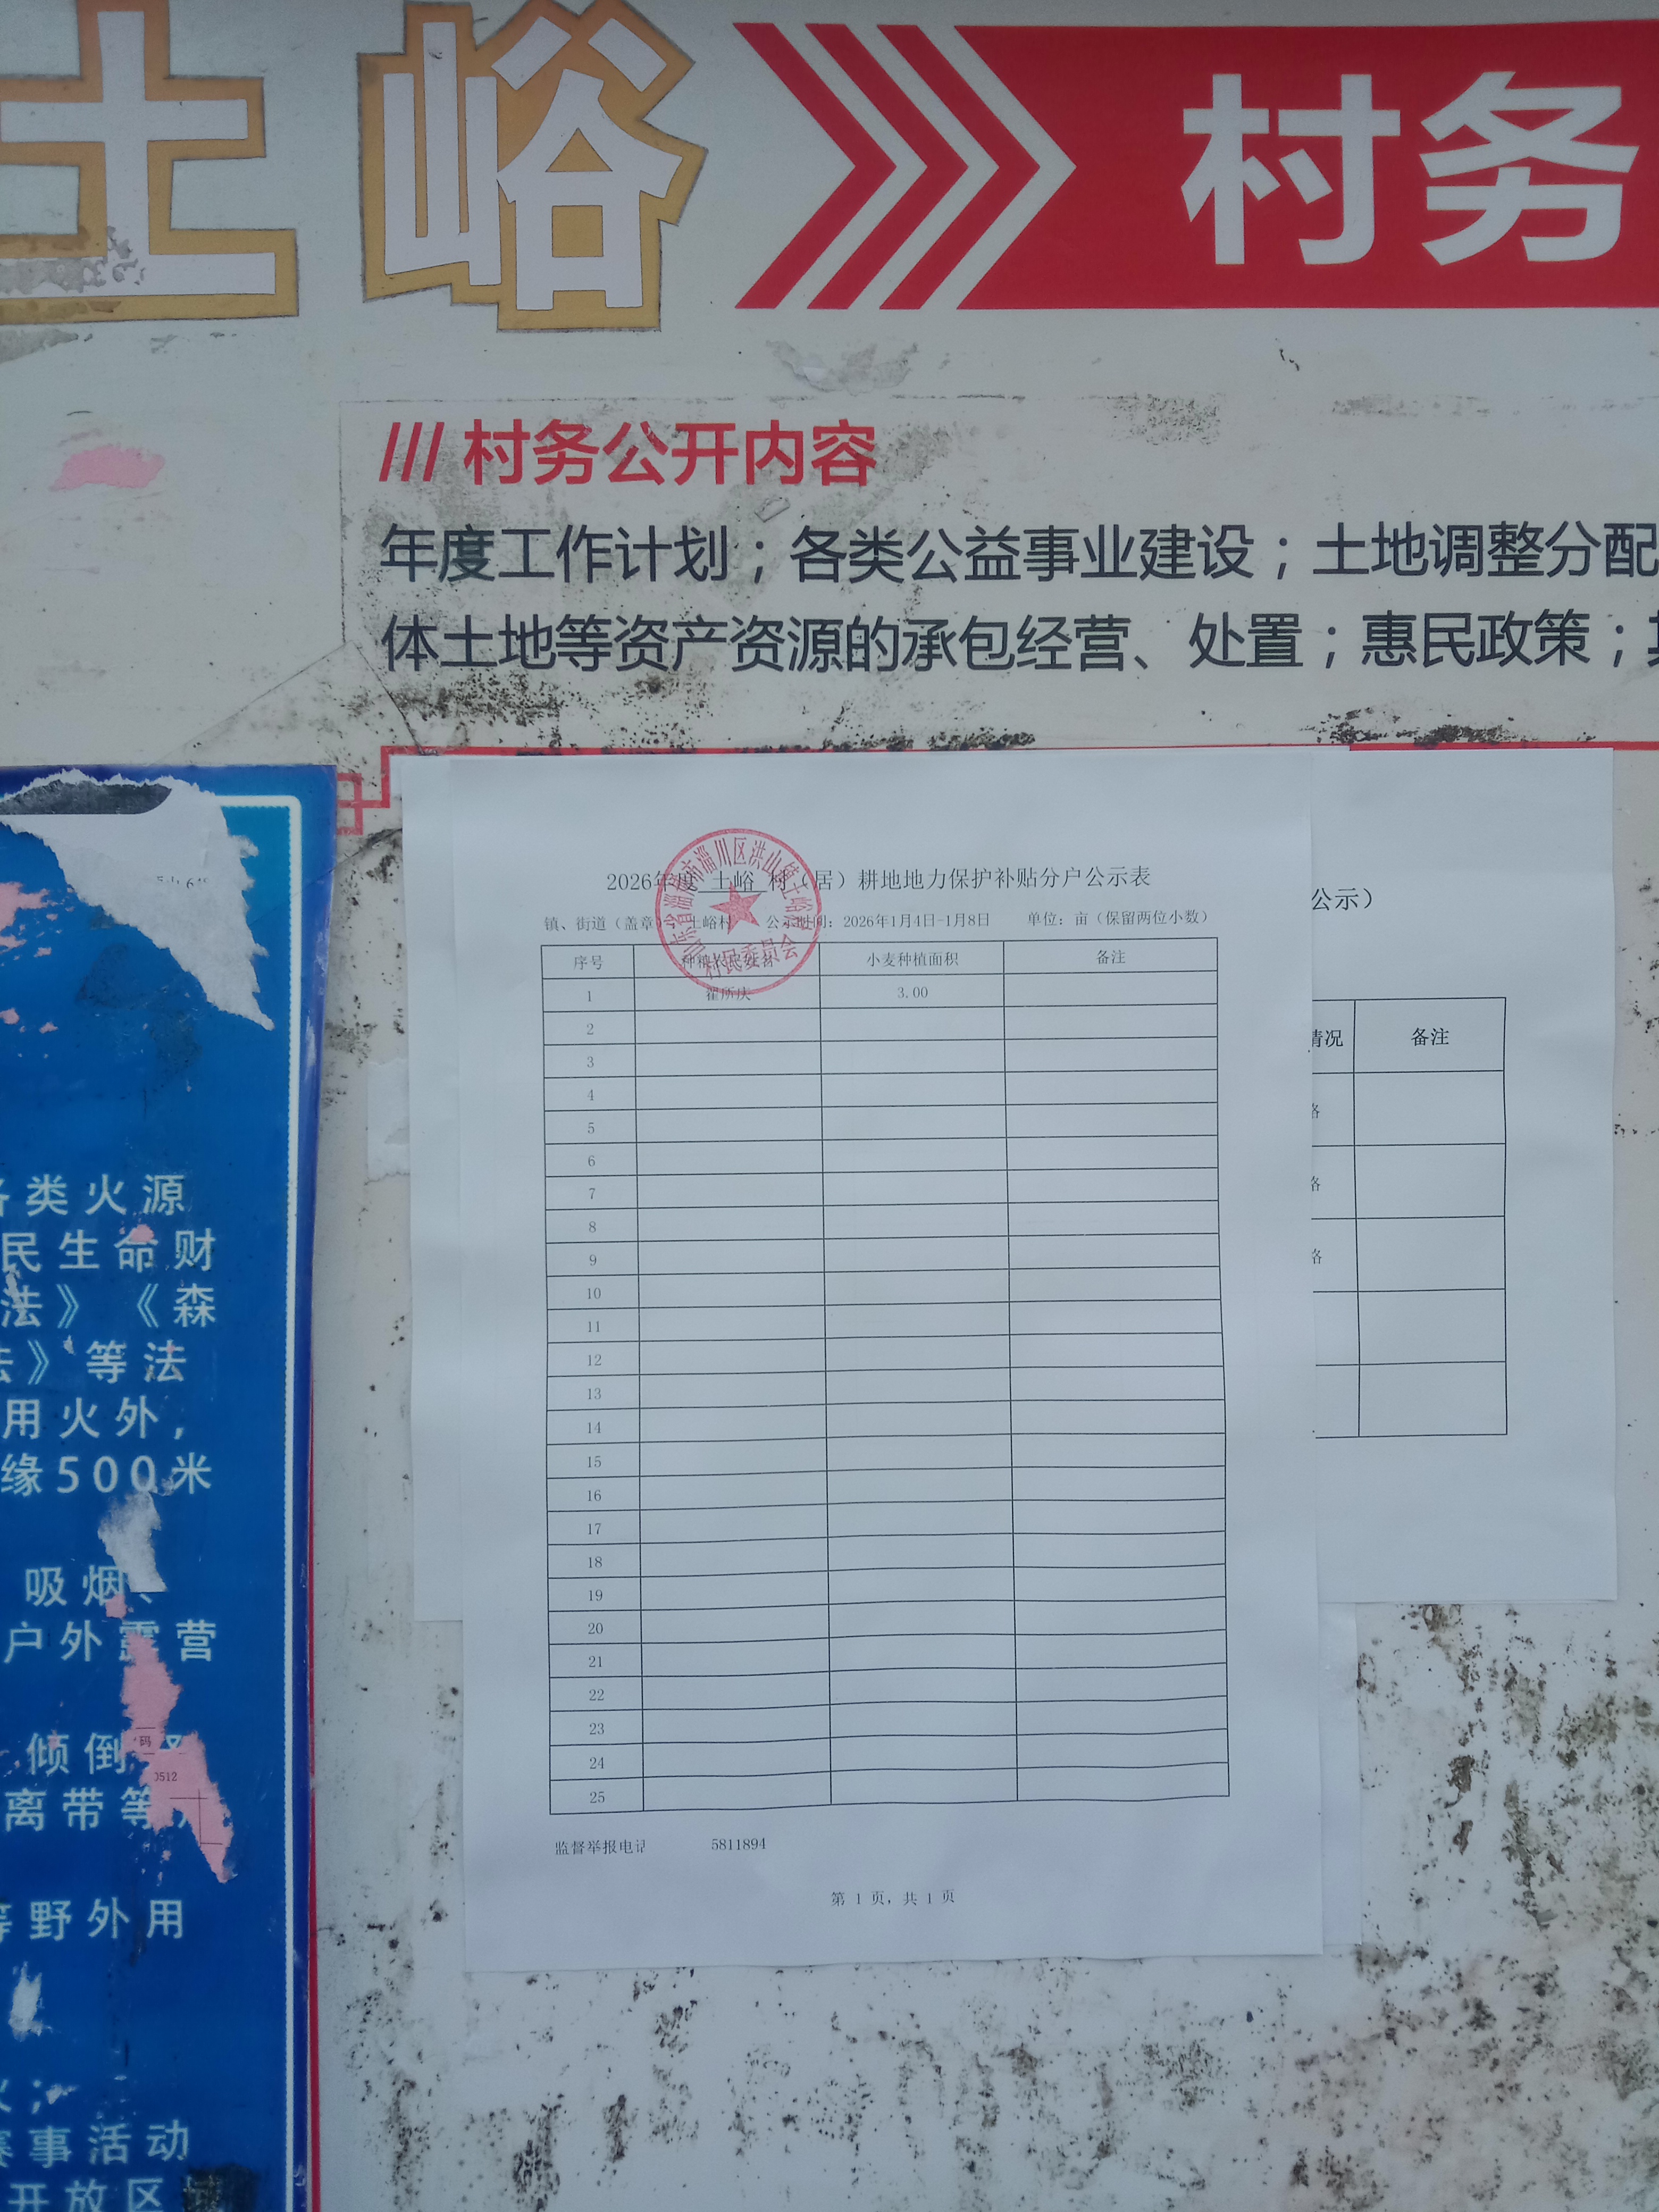 土峪 村务
/// 村务公开内容
年度工作计划；各类公益事业建设；土地调整分配
体土地等资产资源的承包经营、处置；惠民政策；
2026年度 土峪 村（居）耕地地力保护补贴分户公示表
镇、街道（盖章） 土峪村 公示时间：2026年1月4日-1月8日 单位：亩（保留两位小数）
山东省淄博市淄川区洪山镇土峪村
村民委员会
序号 种粮农民姓名 小麦种植面积 备注
1 翟所庆 3.00
2
3
4
5
6
7
8
9
10
11
12
13
14
15
16
17
18
19
20
21
22
23
24
25
监督举报电话 5811894
第 1 页，共 1 页
公示）
情况 备注
各类火源
民生命财
法》《森
法》等法
用火外，
缘500米
吸烟、
户外露营
倾倒
离带等
等野外用
火；
赛事活动
开放区域
码
0512